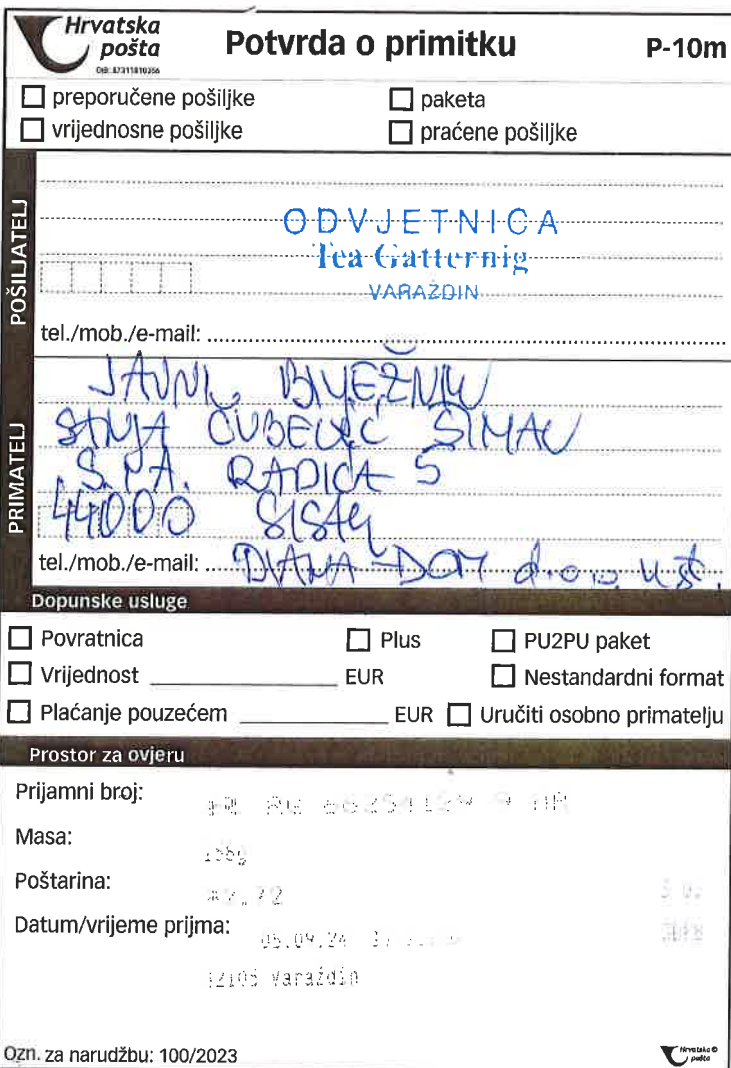 Hrvatska
pošta
OIB: 87311810356
Potvrda o primitku
P-10m
preporučene pošiljke
paketa
vrijednosne pošiljke
praćene pošiljke
POŠILJATELJ
ODVJETNICA
Tea Gatternig
VARAŽDIN
tel./mob./e-mail:
PRIMATELJ
JAVNI BILJEŽNIK
ČUBELIĆ ŠIMAC
RADIĆA 5
44000 SISAK
tel./mob./e-mail: DIANA-DOM d.o.o.
Dopunske usluge
Povratnica
Plus
PU2PU paket
Vrijednost EUR
Nestandardni format
Plaćanje pouzećem EUR
Uručiti osobno primatelju
Prostor za ovjeru
Prijamni broj:
Masa:
Poštarina:
Datum/vrijeme prijma: 05.09.24
Varaždin
Ozn. za narudžbu: 100/2023
Hrvatska
pošta